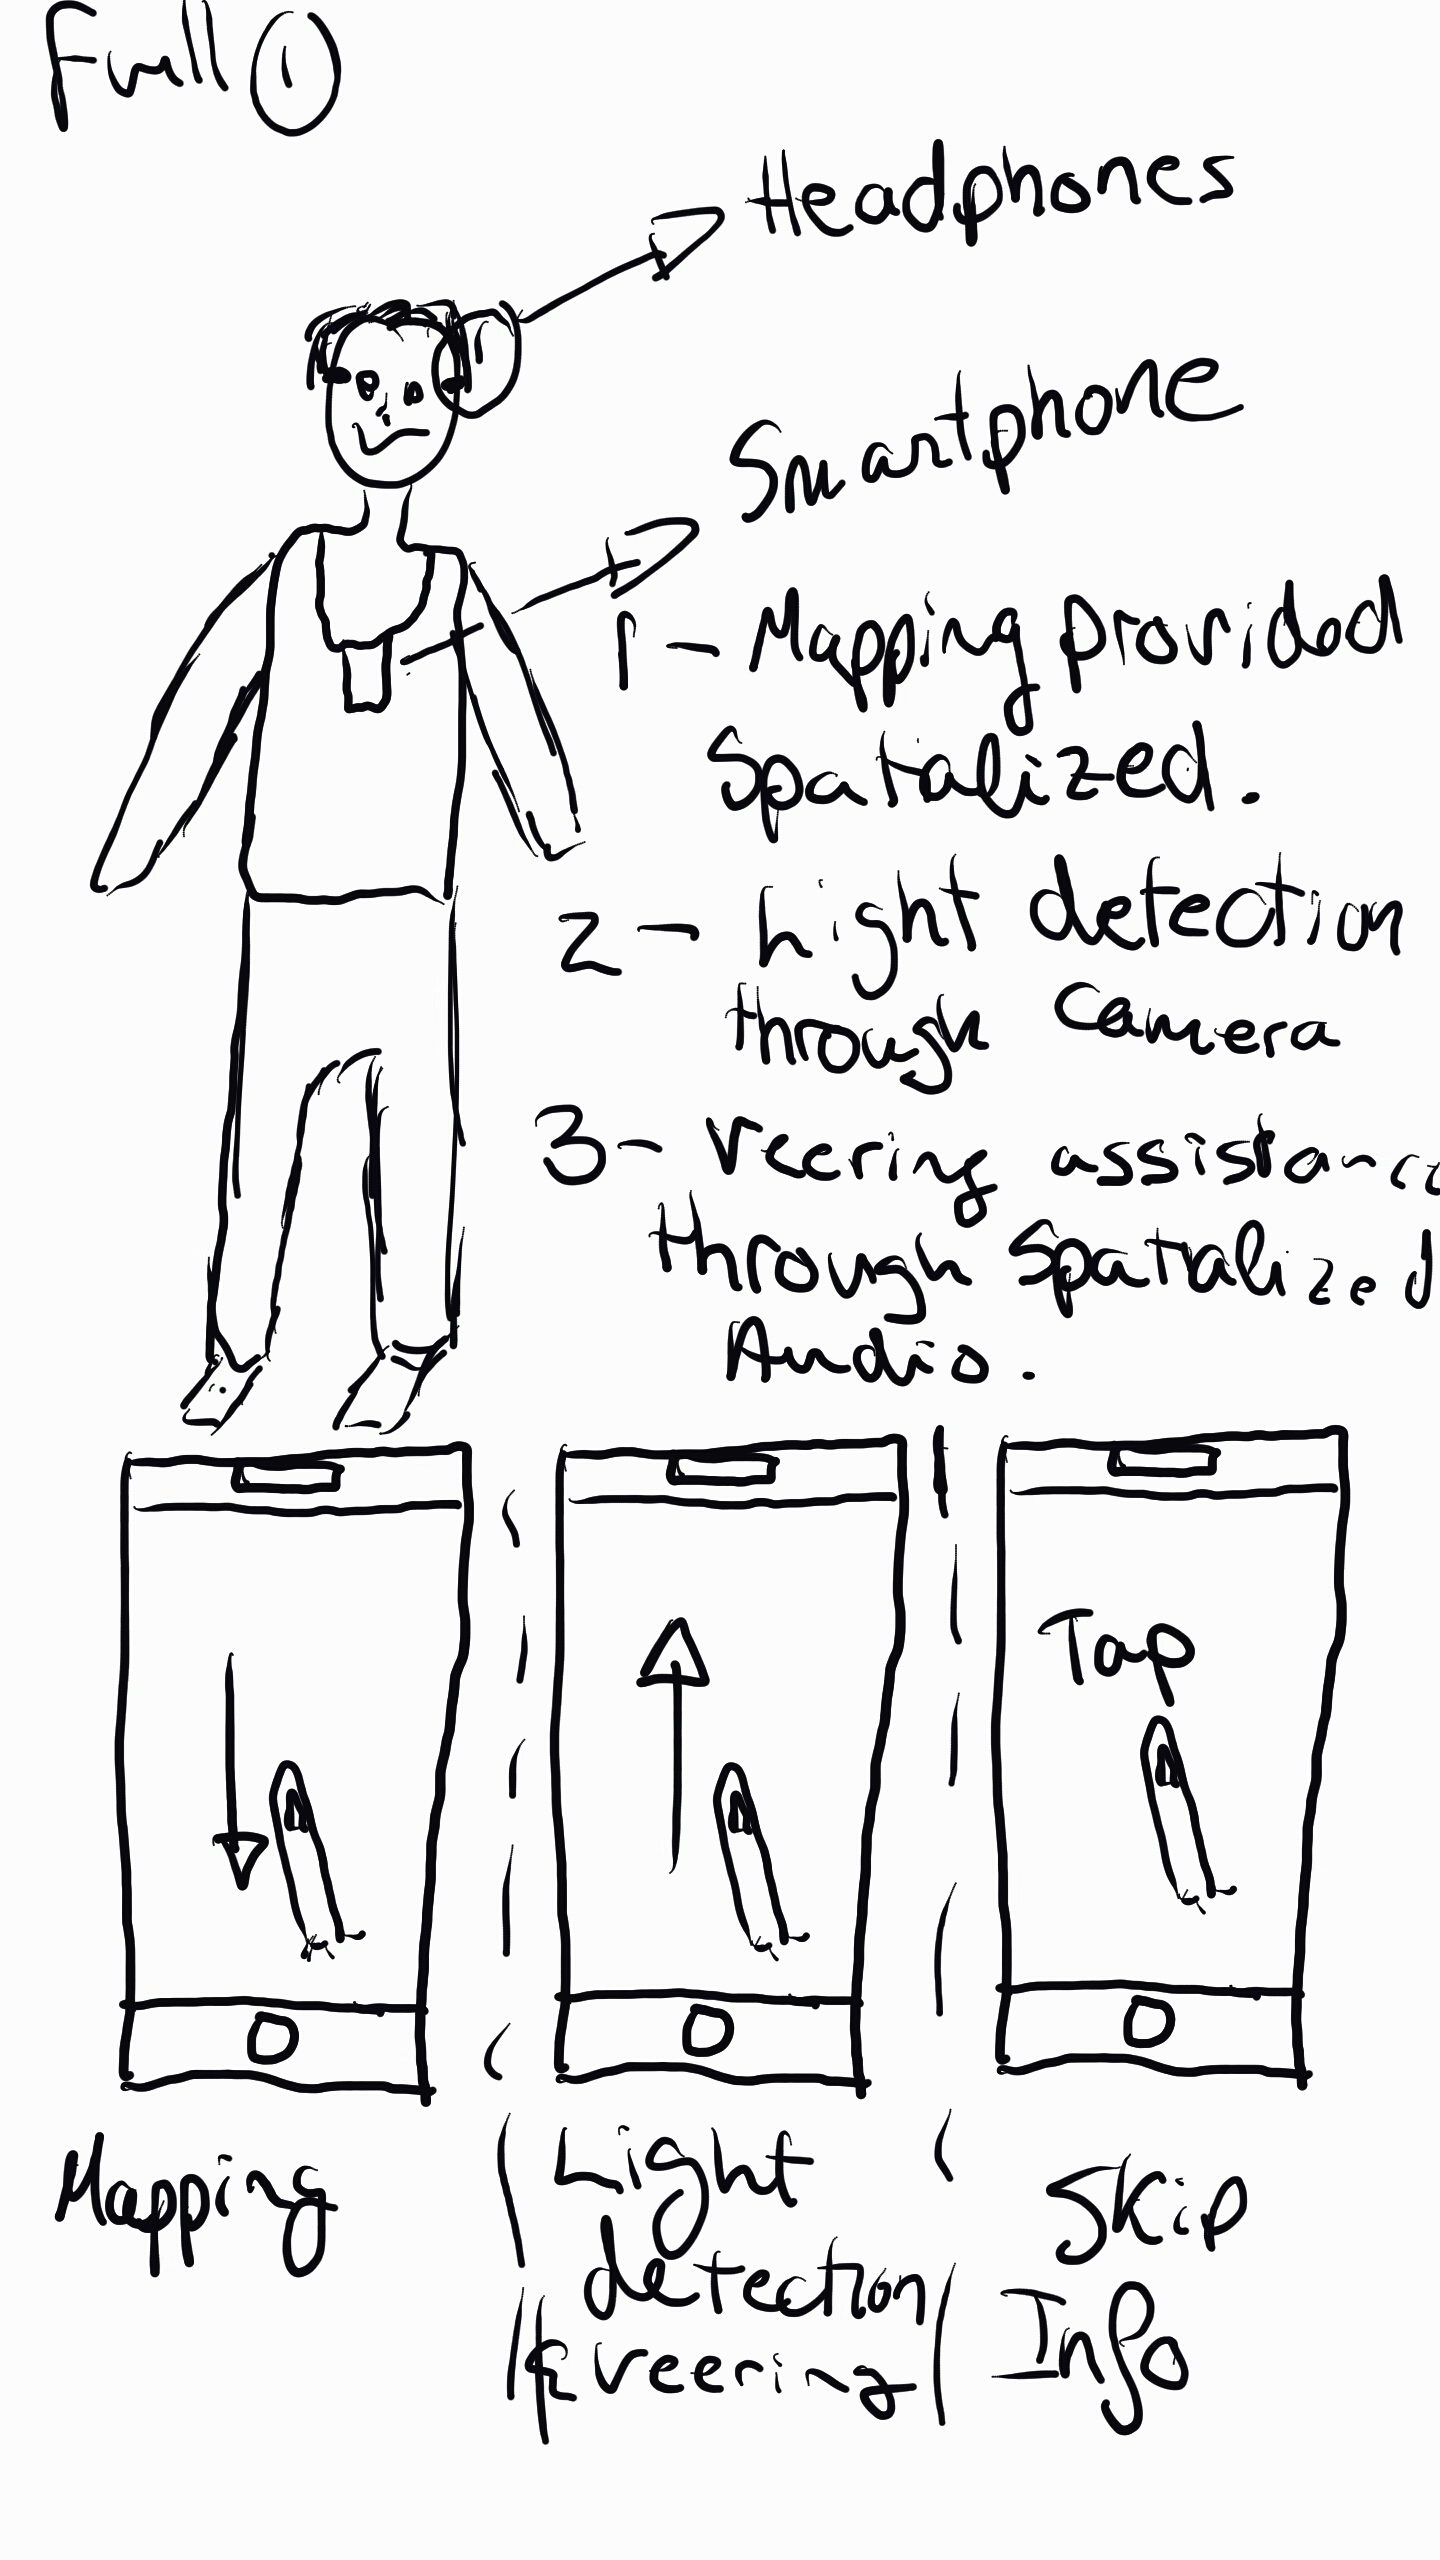 Full 1
Headphones
Smartphone
1 - Mapping provided
Spatalized.
2 - Light detection
through camera
3 - Veering assistance
through spatialized
Audio.
Tap
Mapping
Light
detection
& veering
Skip
Info